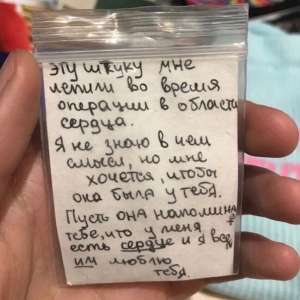 эту штуку мне
лепили во время
операции в области
сердца.
Я не знаю в чем
смысл, но мне
хочется, чтобы
она была у тебя.
Пусть ОНА напомина
тебе, что у меня
есть сердце и я все
им люблю
тебя.